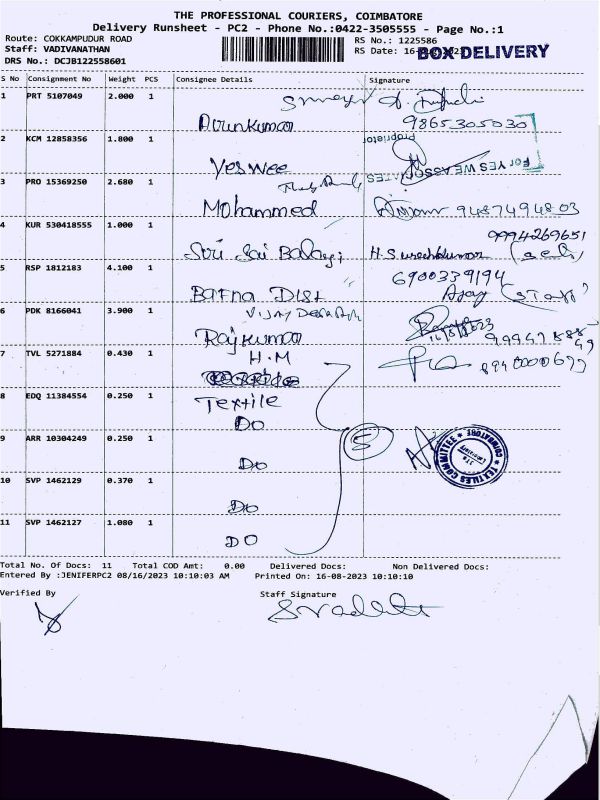 THE PROFESSIONAL COURIERS, COIMBATORE
Delivery Runsheet - PC2 - Phone No.:0422-3505555 - Page No.:1
Route: COKKAMPUDUR ROAD
RS No.: 1225586
Staff: VADIVANATHAN
RS Date: 16-Aug-2023
BOX DELIVERY
DRS No.: DCJB122558601
S No Consignment No Weight PCS Consignee Details Signature
1 PRT 5107049 2.000 1 Arunkumar 9865305030
2 KCM 12858356 1.800 1 Yes Wee
For YES WE ASSOCIATES
Proprietor
3 PRO 15369250 2.680 1 Mohammed 9487494803
4 KUR 530418555 1.000 1 Sri Sai Balaji H.Sureshkumar
9994269651
5 RSP 1812183 4.100 1 Barna Dist 6900339194
Ajay (Staff)
6 PDK 8166041 3.900 1 Vijay
Rajkumar
7 TVL 5271884 0.430 1 H.M
8 EDQ 11384554 0.250 1 Textile
DO
9 ARR 10304249 0.250 1 DO
5
TEXTILES COMMITTEE * COIMBATORE *
10 SVP 1462129 0.370 1 DO
11 SVP 1462127 1.080 1 DO
Total No. Of Docs: 11 Total COD Amt: 0.00 Delivered Docs: Non Delivered Docs:
Entered By :JENIFERPC2 08/16/2023 10:10:03 AM Printed On: 16-08-2023 10:10:10
Verified By Staff Signature